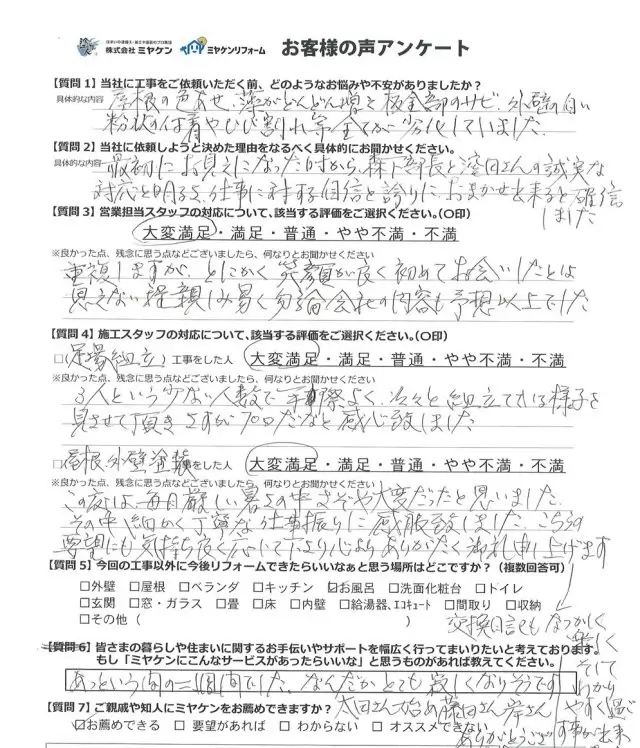 住まいの塗替え・雨もり修理のプロ集団
株式会社 ミヤケン ミヤケンリフォーム お客様の声アンケート
【質問 1】当社に工事をご依頼いただく前、どのようなお悩みや不安がありましたか？
具体的な内容 屋根の色あせ、藻がどんどん増え 板金部のサビ、外壁の白い
粉状の付着やひび割れ等全てが劣化していました。
【質問 2】当社に依頼しようと決めた理由をなるべく具体的にお聞かせください。
具体的な内容 最初にお見えになった時から、森下部長と窪田さんの誠実な
対応と明るさ、仕事に対する自信と誇りに、おまかせ出来ると確信
しました
【質問 3】営業担当スタッフの対応について、該当する評価をご選択ください。（○印）
大変満足・満足・普通・やや不満・不満
※良かった点、残念に思う点などございましたら、何なりとお聞かせください
重複しますが、とにかく笑顔が良く初めてお会いしたとは
思えない程親しみ易く勿論会社の内容も予想以上でした
【質問 4】施工スタッフの対応について、該当する評価をご選択ください。（○印）
□（足場組立）工事をした人 大変満足・満足・普通・やや不満・不満
※良かった点、残念に思う点などございましたら、何なりとお聞かせください
3人という少ない人数で手際よく、次々と組立てれる様子を
見させて頂きさすがプロだなと感心致しました
□屋根、外壁塗装をした人 大変満足・満足・普通・やや不満・不満
※良かった点、残念に思う点などございましたら、何なりとお聞かせください
この度は、毎日厳しい暑さの中さぞや大変だったと思いました。
その中、細かく丁寧な仕事振りに感服致しました。こちらの
要望にも気持ち良く応じて下さり心よりありがたく御礼申し上げます
【質問 5】今回の工事以外に今後リフォームできたらいいなぁと思う場所はどこですか？（複数回答可）
□外壁 □屋根 □ベランダ □キッチン ☑お風呂 □洗面化粧台 □トイレ
□玄関 □窓・ガラス □畳 □床 □内壁 □給湯器、エコキュート □間取り □収納
□その他（ ）
交換日記もなつかしく
楽しく
そして
わかり
やすく過ごす
事が出来
ありがとうござ
【質問 6】皆さまの暮らしや住まいに関するお手伝いやサポートを幅広く行ってまいりたいと考えております。
もし「ミヤケンにこんなサービスがあったらいいな」と思うものがあれば教えてください。
あっという間の二週間でした。なんだかとても寂しくなりそうです
【質問 7】ご親戚や知人にミヤケンをお薦めできますか？ 太田さん始め藤田さん岸さん
☑お薦めできる □ 要望があれば □ わからない □ オススメできない